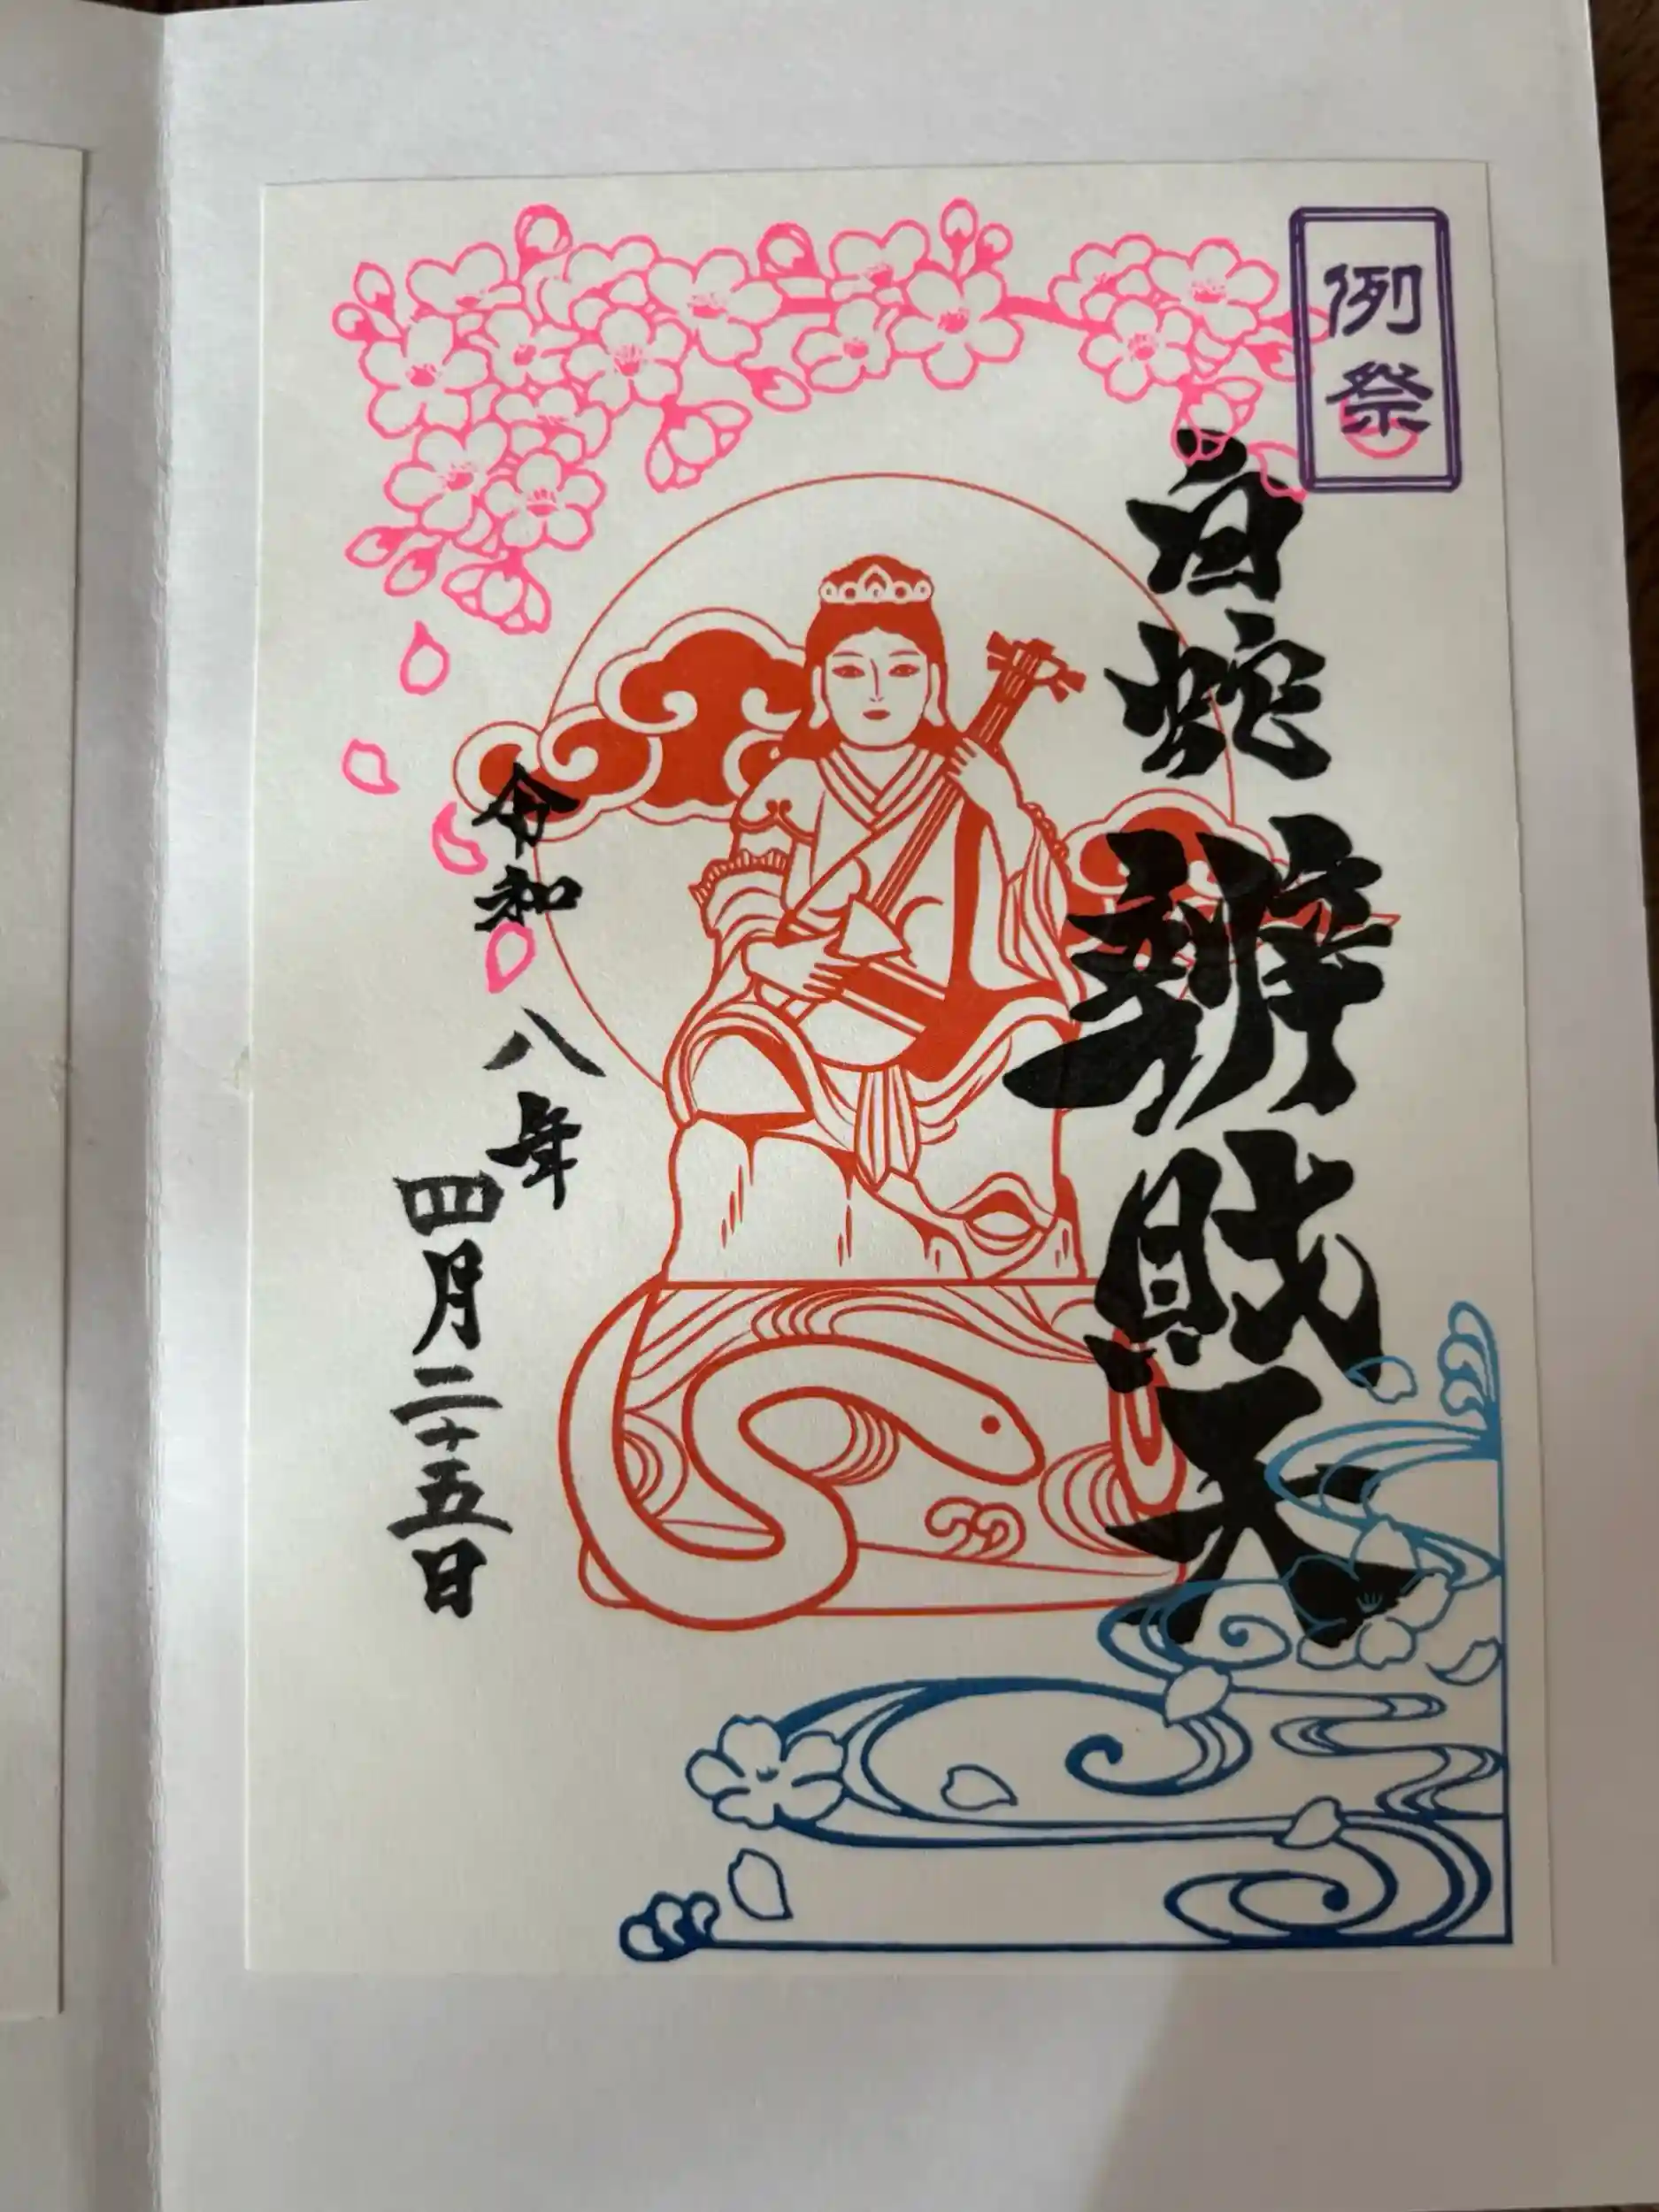 例祭
白蛇辨財天
令和八年
四月二十五日